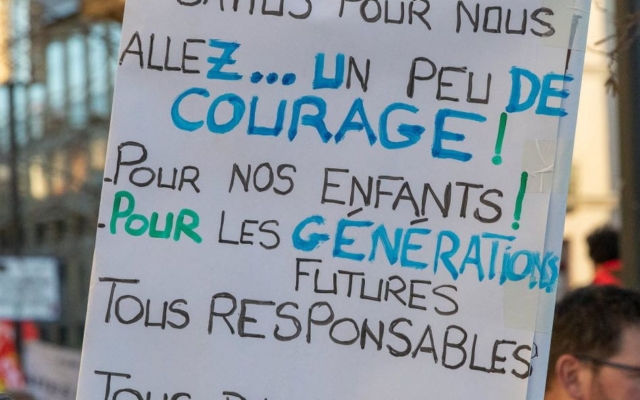 POUR NOUS
ALLEZ... UN PEU DE
COURAGE !
-POUR NOS ENFANTS !
-POUR LES GÉNÉRATIONS
FUTURES
TOUS RESPONSABLES
TOUS